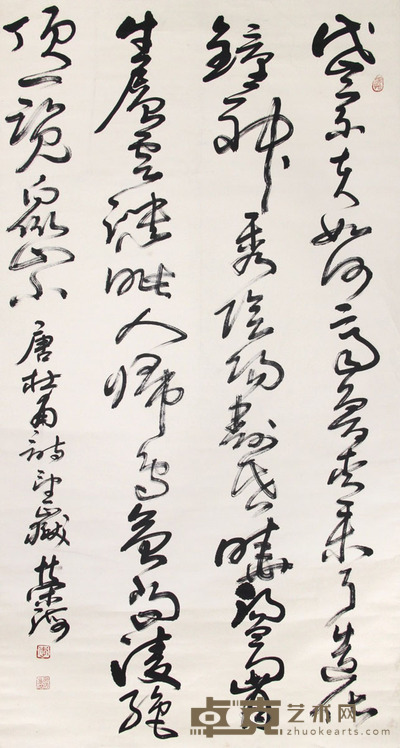 岱宗夫如何齊魯青未了造化
鐘神秀陰陽割昏曉盪胸
生層雲決眦入歸鳥會當凌絕
頂一覽眾山小
唐杜甫詩望嶽
卓克艺术网
www.zhuokearts.com